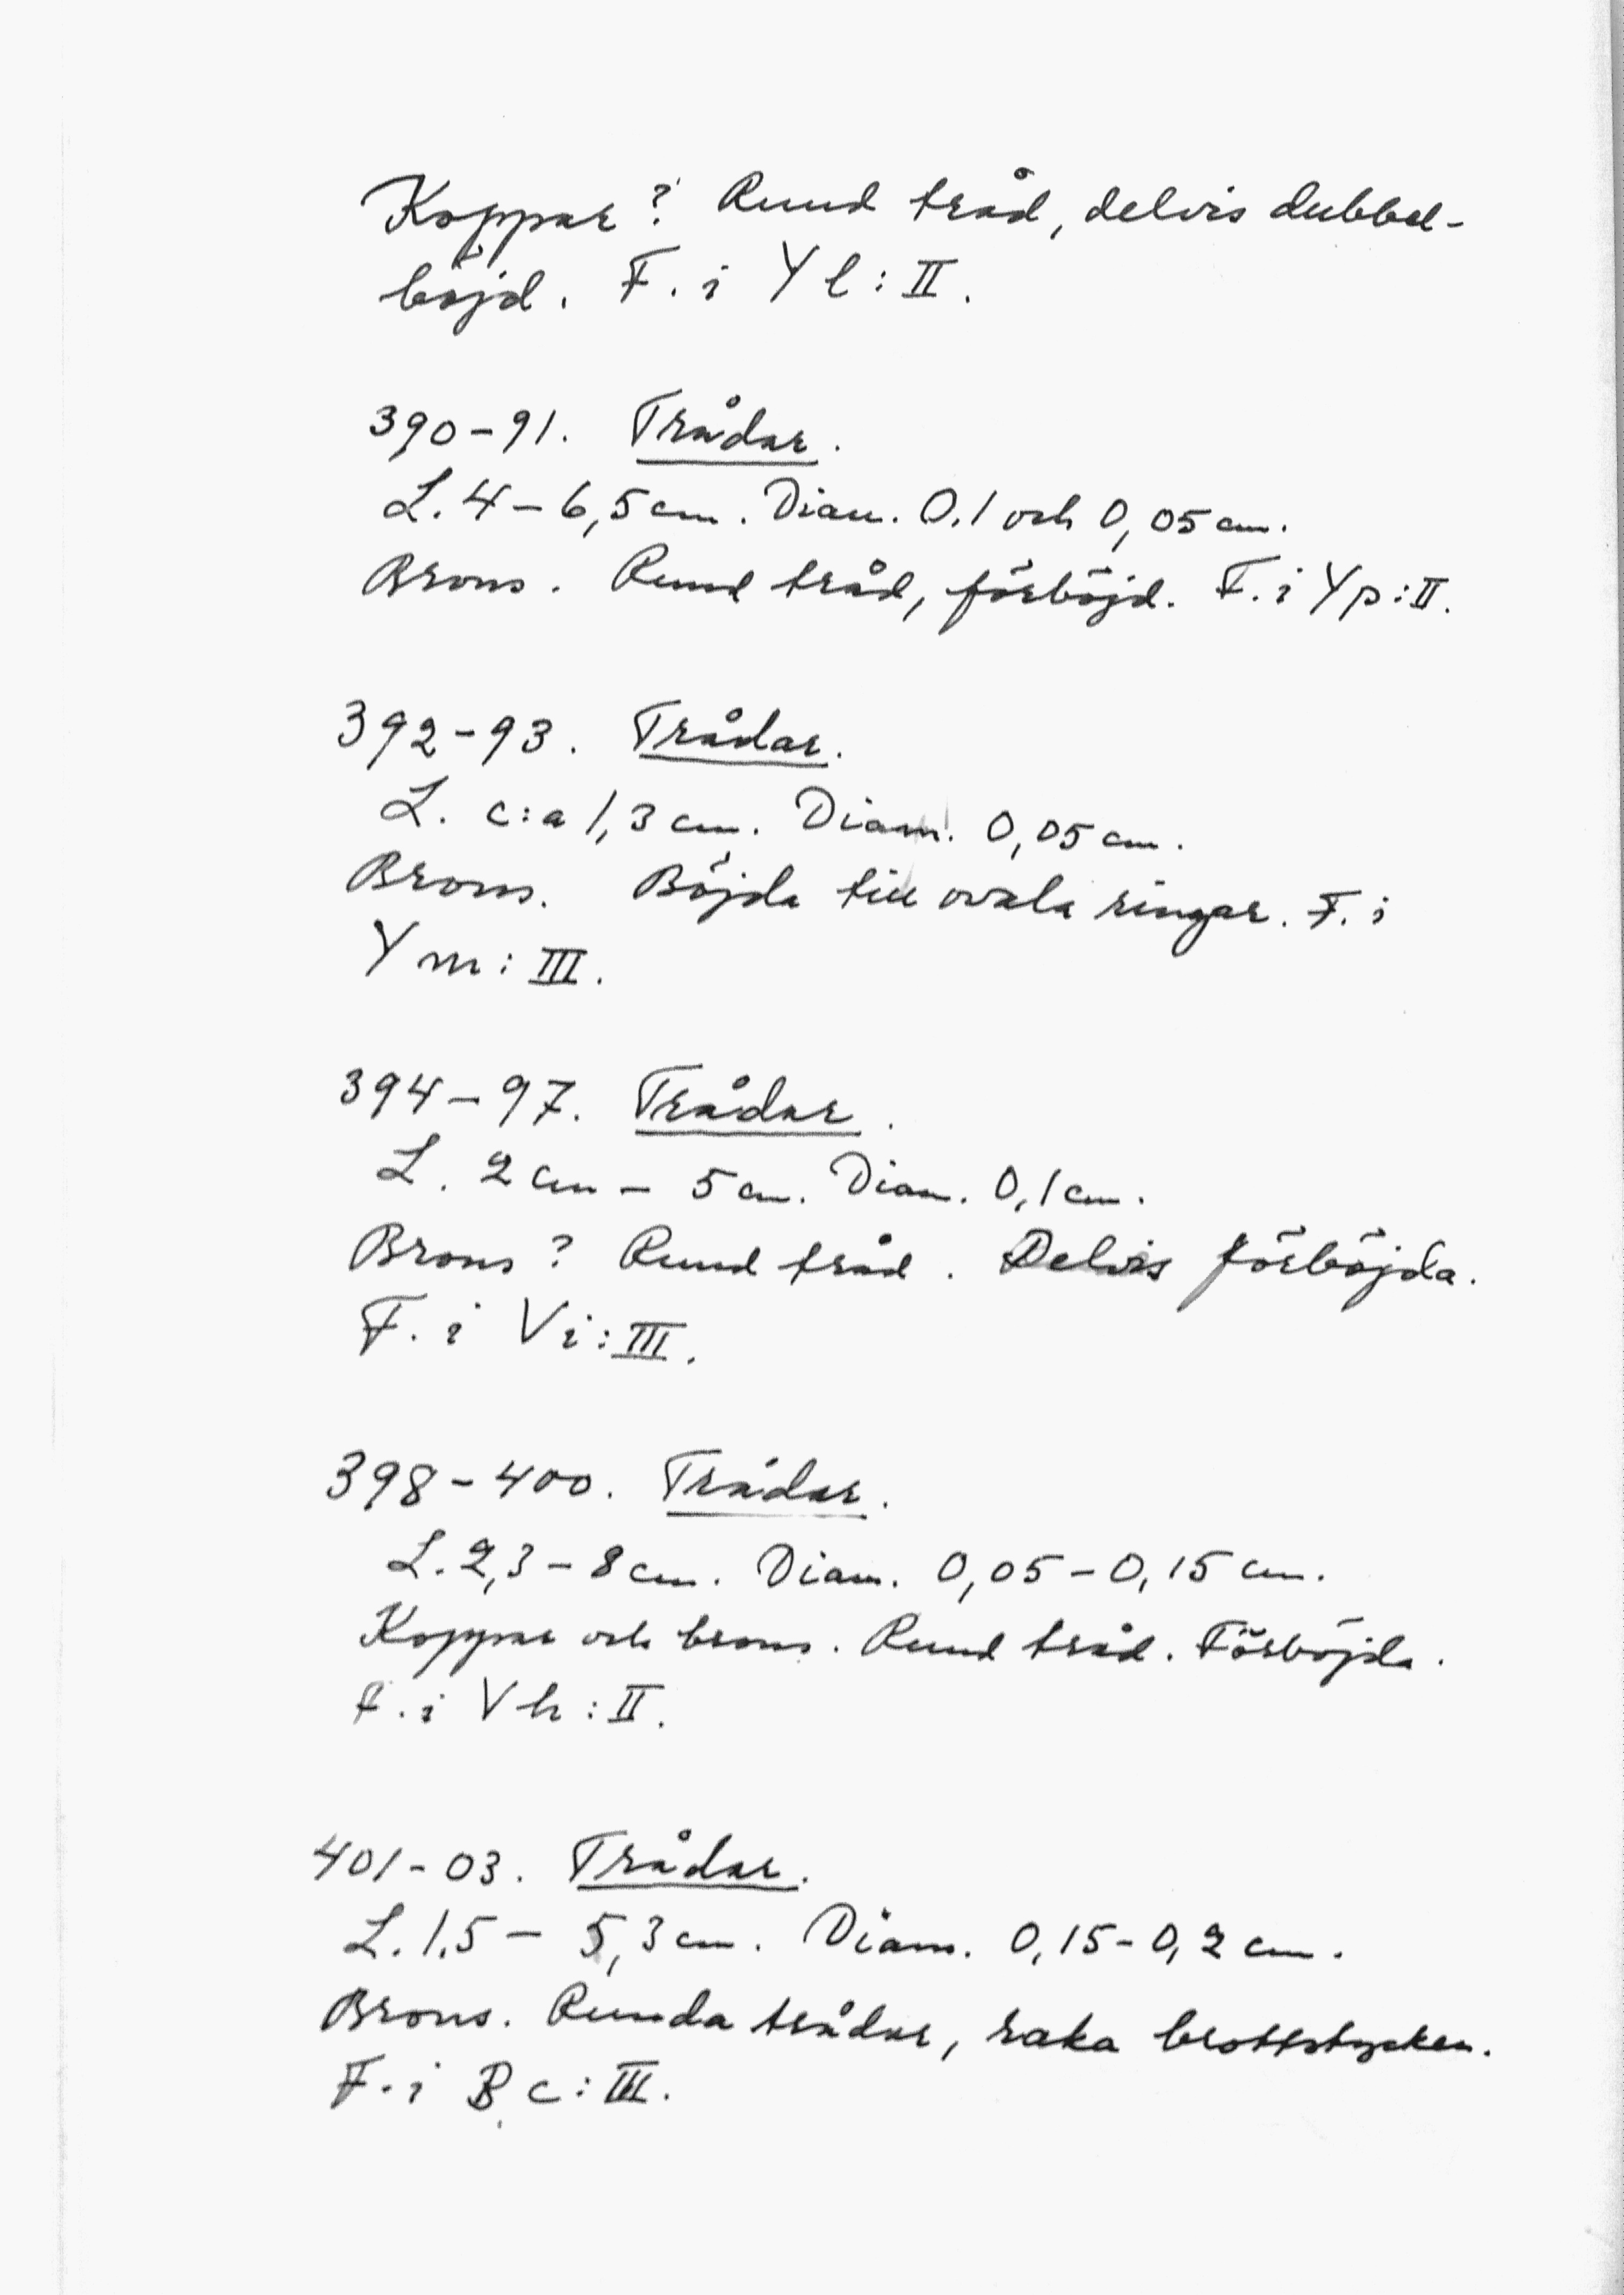 Koppar? Rund tråd, delvis dubbel-
böjd. F. i Y l : II.
390-91. Trådar.
L. 4-6,5 cm. Diam. 0,1 och 0,05 cm.
Brons. Rund tråd, förböjd. F. i Y p : II.
392-93. Trådar.
L. c:a 1,3 cm. Diam. 0,05 cm.
Brons. Böjda till ovala ringar. F. i
Y m : III.
394-97. Trådar.
L. 2 cm - 5 cm. Diam. 0,1 cm.
Brons? Rund tråd. Delvis förböjda.
F. i V i : III.
398-400. Trådar.
L. 2,3-8 cm. Diam. 0,05-0,15 cm.
Koppar och brons. Rund tråd. Förböjda.
F. i V h : II.
401-03. Trådar.
L. 1,5 - 5,3 cm. Diam. 0,15-0,2 cm.
Brons. Runda trådar, raka brottstycken.
F. i B c : III.